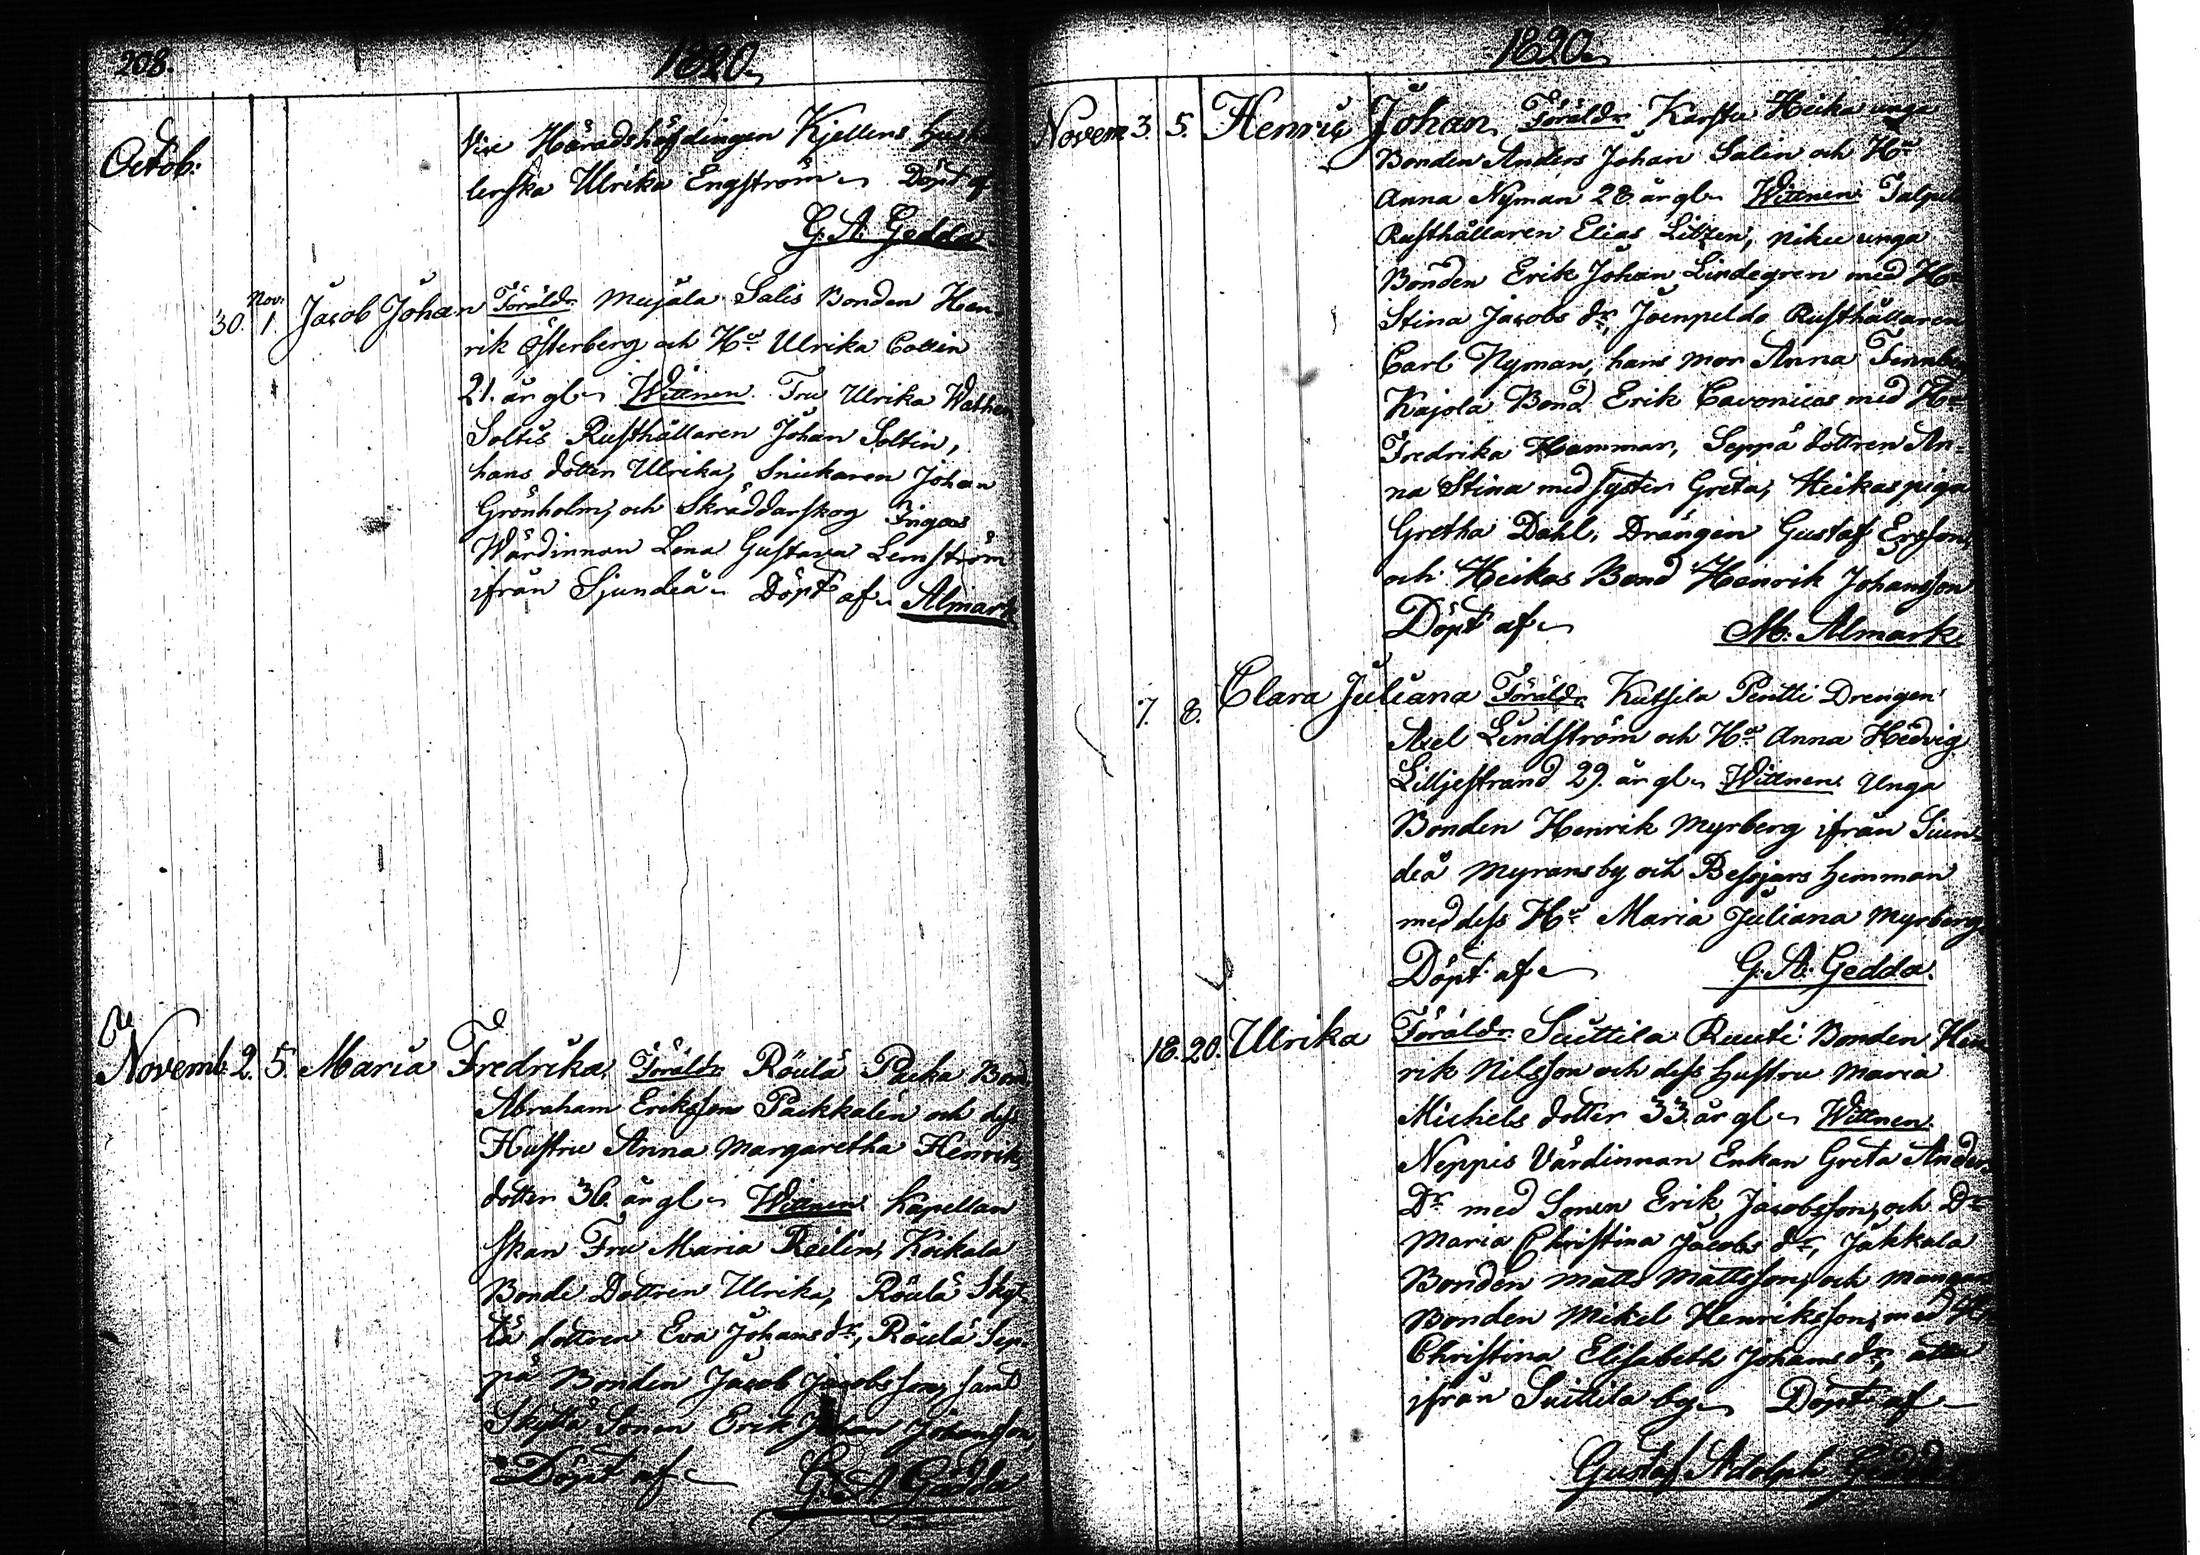 208.
1820
Octob:
Vice Häradshöfdingen Kjellens hus
lerska Ulrika Engström Döpt af
G. A. Gedda
30. Nov: 1. Jacob Johan Föräldr. Mujala Salis Bonden Hen
rik Österberg och Hu Ulrika Collin
21. år gl. Wittnen. Fru Ulrika Wathen
Soltis Rusthållaren Johan Soltin,
hans dotter Ulrika, Snickaren Johan
Grönholm, och Skräddarskog Ingas
Wärdinnan Lena Gustava Lemström
ifrån Sjundeå. Döpt af Almark
Novemb. 2. 5. Maria Fredrika, Föräldr. Röulä Packa Bon
Abraham Eriksson Packkalén och dess
Hustru Anna Margaretha Henriks
dotter 36. år gl. Wittnen. Kapellan
skan Fru Maria Reilin, Koikala
Bonde Dottren Ulrika, Röulä Skyt
tä dottren Eva Johans dr, Röulä Sep
pä Bonden Jacob Jacobsson, samt
Skyttä Sonen Erik Johan Johansson,
Döpt af G. A. Gadda
1820
Novem 3. 5. Henric Johan, Föräldr. Karstu Heika unga
Bonden Anders Johan Salin och Hu
Anna Nyman 28 år gl. Wittnen.
Rusthållaren Elias Litzen, Niku unga
Bonden Erik Johan Lindegren med Hu
Stina Jacobs dr, Joenpeldo Rusthållaren
Carl Nyman, hans mor Anna
Kajola Bond Erik Cavonius med Hu
Fredrika Hammar, Seppä dottren An=
na Stina med syster Greta, Heikas piga
Gretha Dahl, Drängen Gustaf Ersson,
och Heikas Bond Heinrik Johansson
Döpt af M. Almark
7. 8. Clara Juliana Föräldr. Kutsila Pentti Drengen
Axel Lindström och Hu Anna Hedvig
Lilljestrand 29. år gl. Wittnen. Unga
Bonden Henrik Myrberg ifrån Siun
deå Myransby och Bessjars hemman
med dess Hu Maria Juliana Myrberg
Döpt af G. A. Gedda.
18. 20. Ulrika Föräldr. Suittila Ruuti Bonden Hen
rik Nilsson och dess hustru Maria
Michels dotter 33. år gl. Wittnen.
Neppis Värdinnan Enkan Greta Anders
Dr med Sonen Erik Jacobsson, och Dr
Maria Christina Jacobs dr, Jakkala
Bonden Matts Mattsson, och
Bonden Mikel Henriksson, med Hu
Christina Elisabeth Johans dr, alla
ifrån Suittila by. Döpt af
Gustaf Adolph Gedda